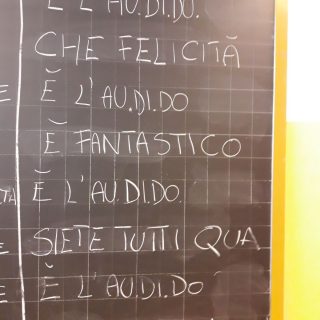 L'AU.DI.DO.
CHE FELICITĂ
Ĕ L'AU.DI.DO
Ĕ FANTASTICO
Ĕ L'AU.DI.DO.
SIETE TUTTI QUA
Ĕ L'AU.DI.DO